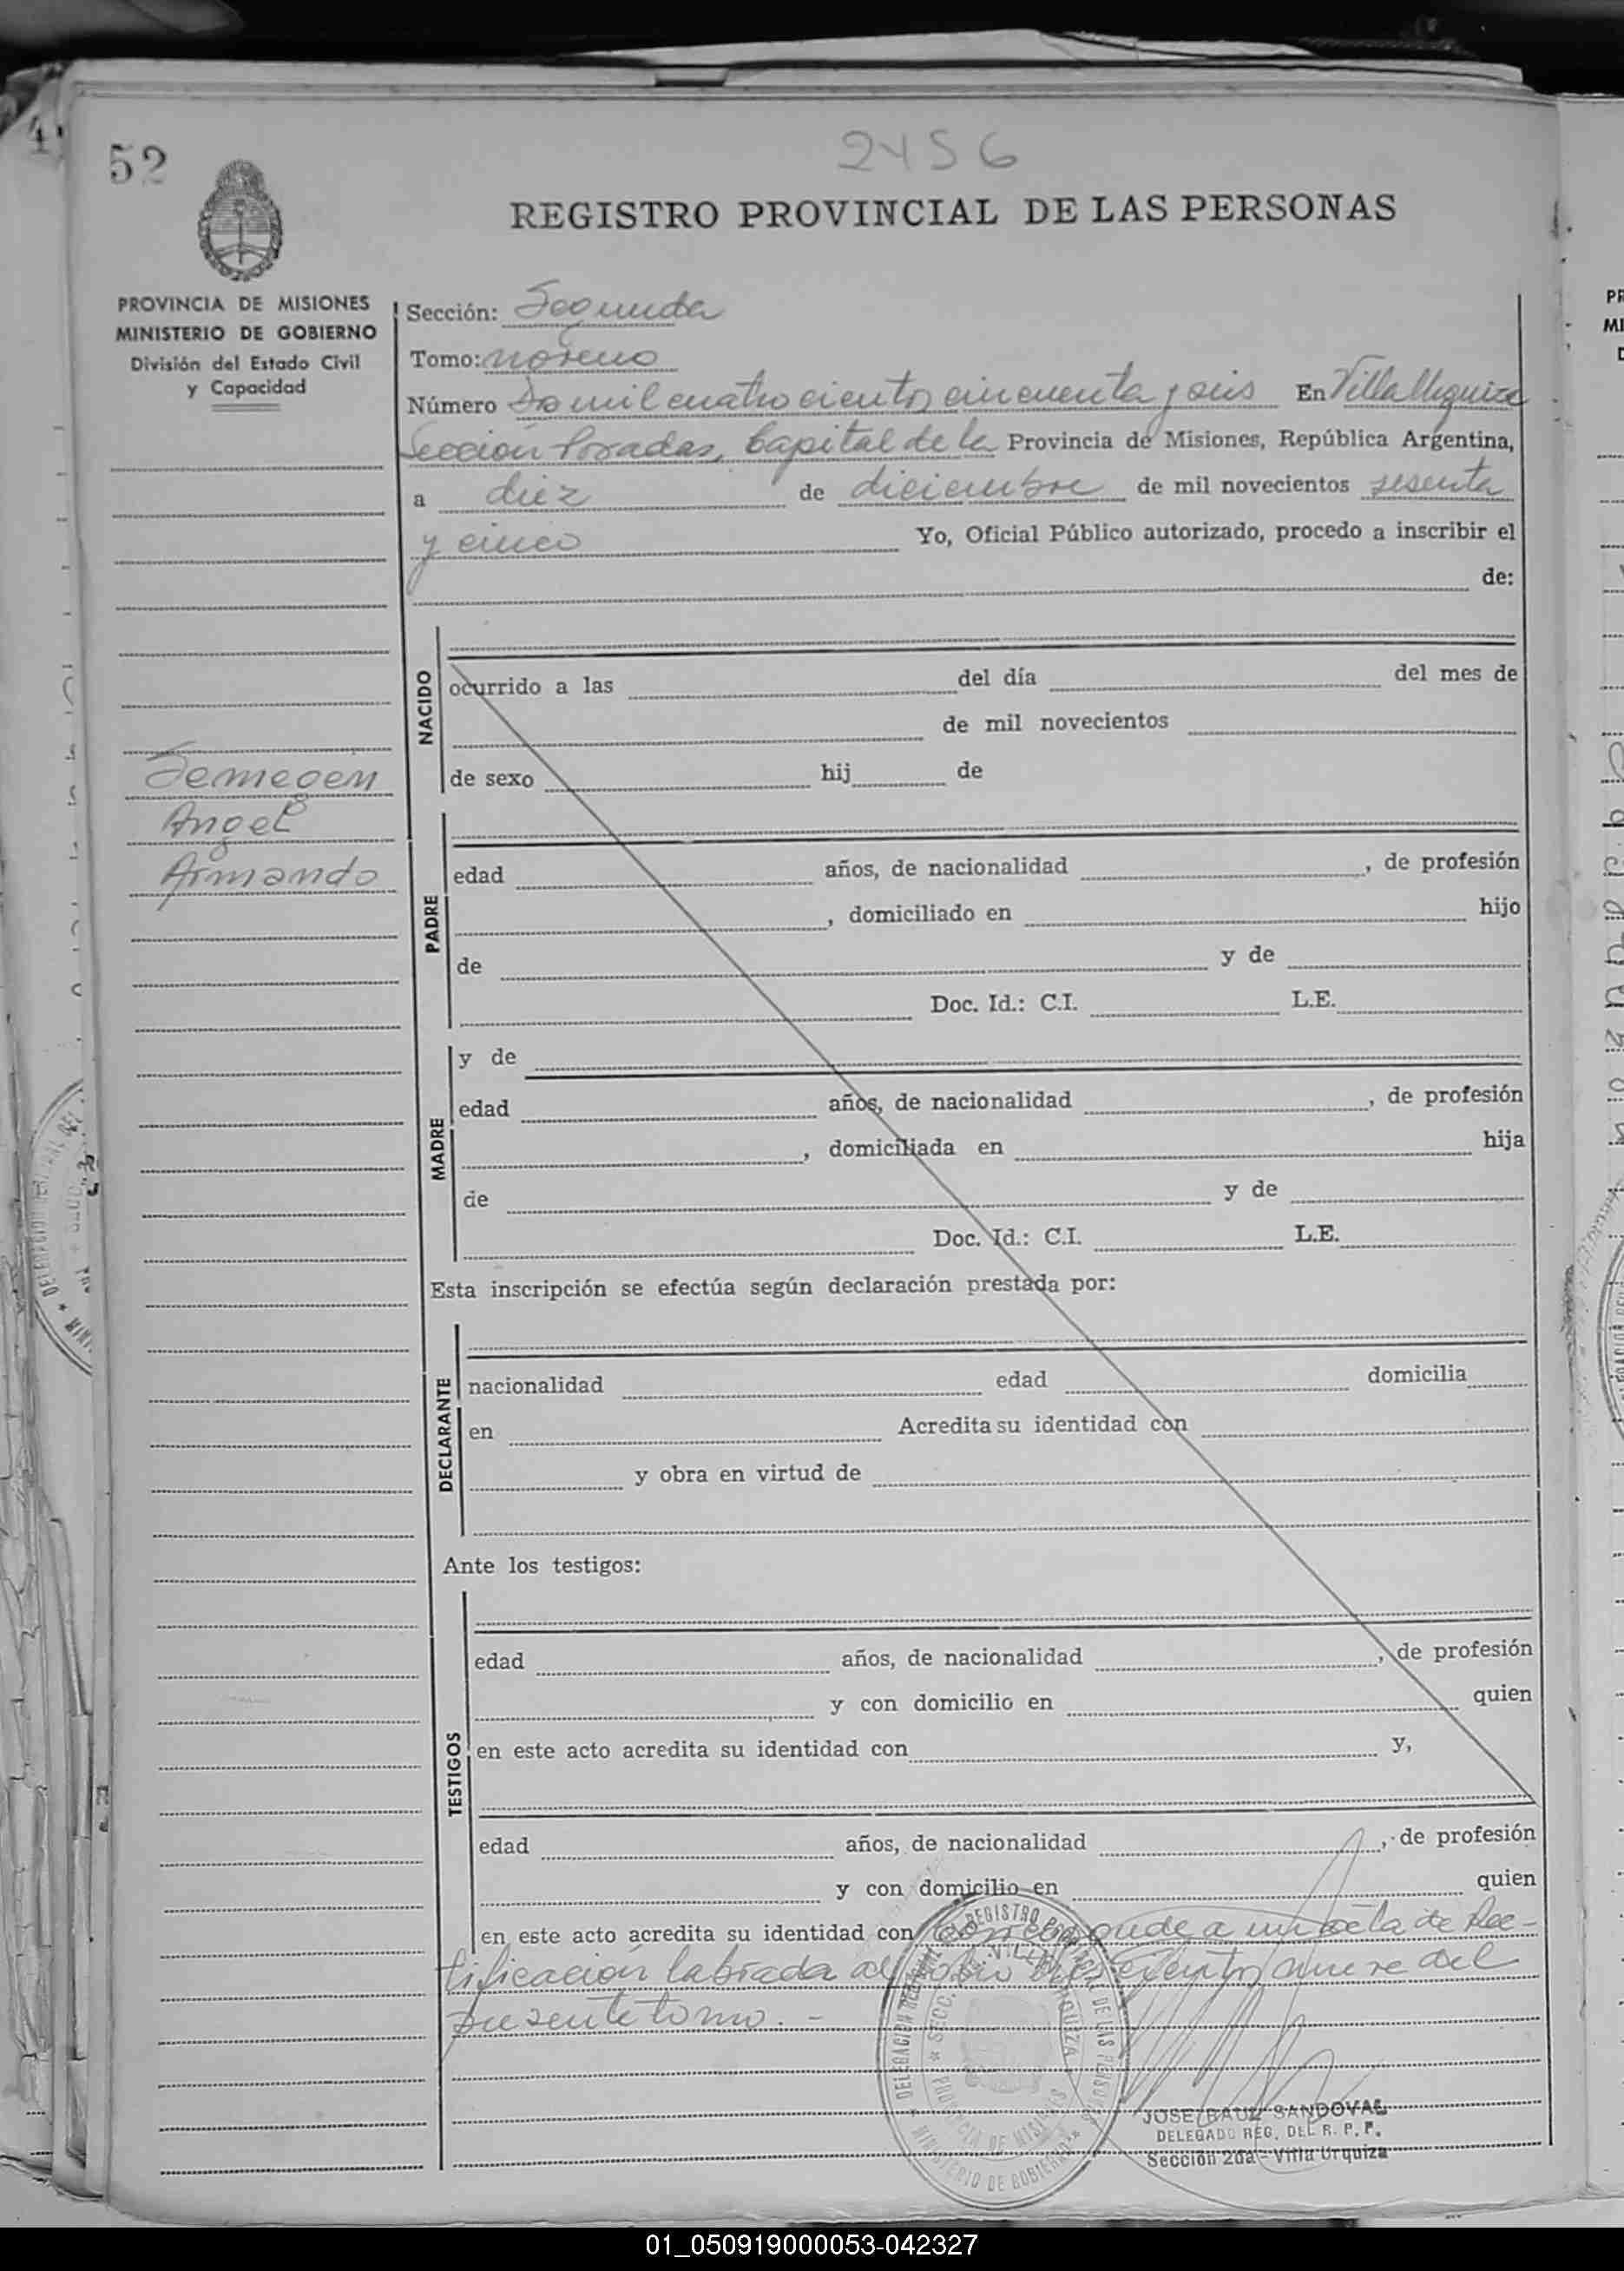 52
2456
REGISTRO PROVINCIAL DE LAS PERSONAS
PROVINCIA DE MISIONES
MINISTERIO DE GOBIERNO
División del Estado Civil
y Capacidad
Sección: Segunda
Tomo: noveno
Número Dos mil cuatrocientos cincuenta y seis En Villa Urquiza
Sección Posadas, Capital de la Provincia de Misiones, República Argentina,
a diez de diciembre de mil novecientos sesenta
y cinco Yo, Oficial Público autorizado, procedo a inscribir el
de:
NACIDO
ocurrido a las del día del mes de
de mil novecientos
de sexo hij de
Angel
Armando
PADRE
edad años, de nacionalidad , de profesión
, domiciliado en hijo
de y de
Doc. Id.: C.I. L.E.
MADRE
y de
edad años, de nacionalidad , de profesión
, domiciliada en hija
de y de
Doc. Id.: C.I. L.E.
Esta inscripción se efectúa según declaración prestada por:
DECLARANTE
nacionalidad edad domicilia
en Acredita su identidad con
y obra en virtud de
Ante los testigos:
TESTIGOS
edad años, de nacionalidad , de profesión
y con domicilio en quien
en este acto acredita su identidad con y,
edad años, de nacionalidad , de profesión
y con domicilio en quien
en este acto acredita su identidad con Corresponde a un acta de Rec-
tificación labrada al folio nueve del
presente tomo. -
JOSE RAUL SANDOVAL
DELEGADO REG. DEL R. P. P.
Sección 2da - Villa Urquiza
01_050919000053-042327